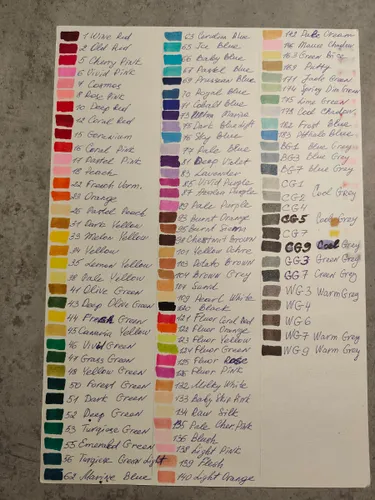 1 Wine Red
2 Old Red
5 Cherry Pink
6 Vivid Pink
7 Cosmos
8 Rose Pink
10 Deep Red
12 Coral Red
13 Geranium
16 Coral Pink
17 Pastel Pink
18 Peach
22 French Verm.
23 Orange
25 Pastel Peach
31 Dark Yellow
33 Melon Yellow
34 Yellow
35 Lemon Yellow
38 Pale Yellow
41 Olive Green
43 Deep Olive Green
44 Fresh Green
45 Canaria Yellow
46 Vivid Green
47 Grass Green
48 Yellow Green
50 Forest Green
51 Dark Green
52 Deep Green
53 Turqiose Green
55 Emerald Green
56 Turqiose Green Light
62 Marine Blue
63 Cerulian Blue
65 Ice Blue
66 Baby Blue
67 Pastel Blue
69 Prussian Blue
70 Royal Blue
71 Cobalt Blue
73 Ultra Marine
75 Dark Blue Light
76 Sky Blue
77 Pale Blue
81 Deep Violet
83 Lavender
85 Vivid Purple
87 Azalea Purple
89 Pale Purple
93 Burnt Orange
95 Burnt Sienna
98 Chestnut Brown
101 Yellow Ochre
103 Potato Brown
104 Brown Grey
107 Sand
109 Pearl White
120 Black
121 Fluor Coral Red
122 Fluor Orange
123 Fluor Yellow
124 Fluor Green
125 Fluor Rose
126 Fluor Pink
132 Milky White
133 Baby Skin Pink
134 Raw Silk
135 Pale Cher Pink
136 Blush
138 Light Pink
139 Flesh
140 Light Orange
142 Pale Cream
146 Mauve Shadow
163 Green Bice
169 Putty
171 Jade Green
174 Spring Dim Green
175 Lime Green
178
182 Frost Blue
183 Phthalo Blue
BG-1 Blue Grey
BG3 Blue Grey
BG-7 Blue Grey
CG-1
Cool Grey
CG-2
CG-4
CG-5 Cool Grey
CG-7
CG9 Cool Grey
GG-3 Green Grey
GG-7 Green Grey
WG-3 Warm Grey
WG-4
WG-6
WG-7 Warm Grey
WG-9 Warm Grey